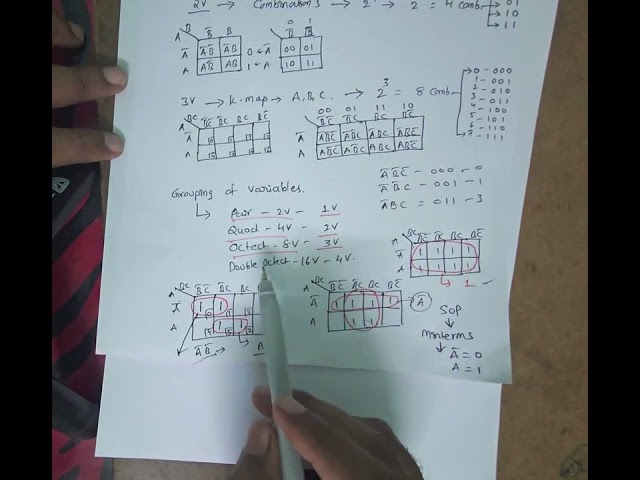 2V → Combinations → 2 → 2 = 4 comb → 01
10
11
B
A B̅ B
A̅ A̅B̅ A̅B 0 ← A̅ 00 01
A AB̅ AB 1 ← A 10 11
3V → K-map → A, B, C. → 2³ = 8 comb
0 - 000
1 - 001
2 - 010
3 - 011
4 - 100
5 - 101
6 - 110
7 - 111
00 01 11 10
BC B̅C̅ B̅C BC BC̅
A̅ A̅B̅C̅ A̅B̅C A̅BC A̅BC̅
A AB̅C̅ AB̅C ABC ABC̅
A̅B̅C̅ - 000 - 0
A̅B̅C - 001 - 1
A̅BC = 011 - 3
Grouping of variables.
Pair - 2V - 1V
Quad - 4V - 2V
Octect - 8V - 3V
Double Octect - 16V - 4V.
BC B̅C̅ B̅C BC BC̅
A̅ 1 1 1 1
A 1 1 1 1
→ 1 ✓
A BC B̅C̅ B̅C BC
A̅ 1 1
A 1 1
A̅B̅ → A
A BC B̅C̅ B̅C BC BC̅
A̅ 1 1 1 1 → A̅
A 1 1
SOP
↓
Minterms
↓
A̅ = 0
A = 1